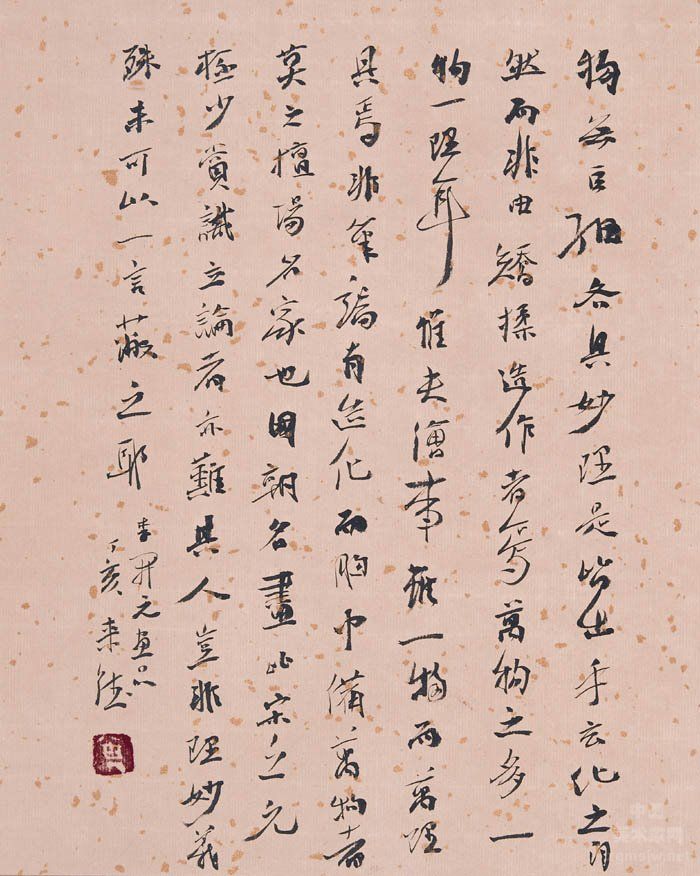 物無巨細各具妙理是皆出乎玄化之自
然而非由矯揉造作者焉萬物之多一
物一理耳惟夫繪事雖一物而萬理
具焉非筆端有造化而胸中備萬物者
莫之擅場名家也國朝名畫比宋之元
極少賞識立論者亦難其人豈非理妙義
殊未可以一言蔽之耶
李開元畫品
丁亥